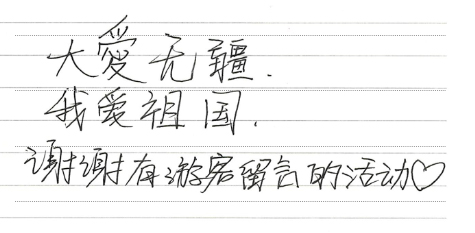 大愛无疆.
我爱祖国.
谢谢有游客留言的活动♡